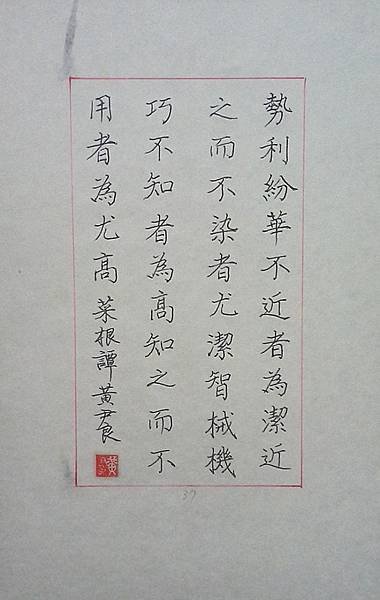 勢利紛華不近者為潔近
之而不染者尤潔智械機
巧不知者為高知之而不
用者為尤高 菜根譚 黃尹良
37